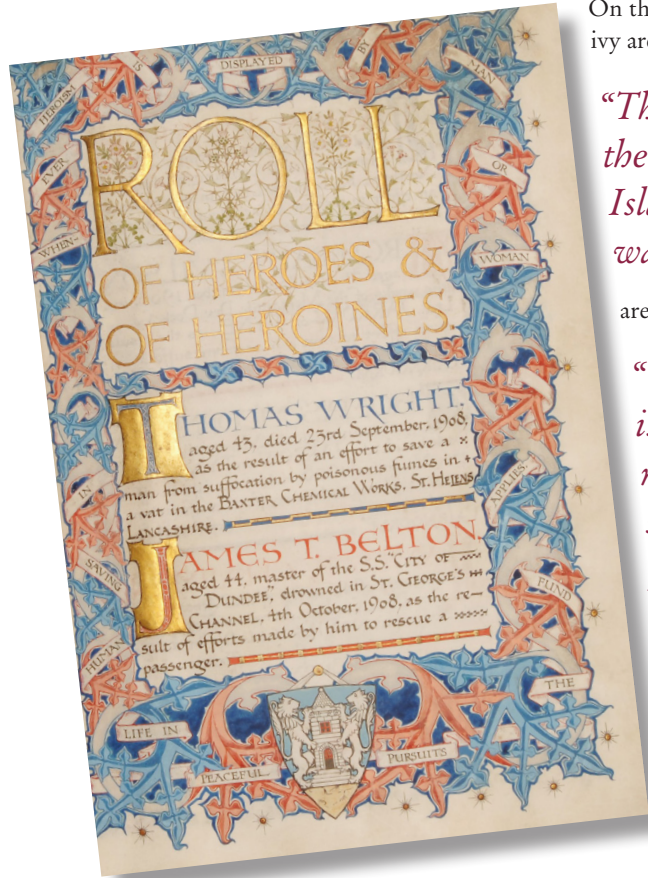 WHEN-
EVER
HEROISM
IS
DISPLAYED
BY
MAN
OR
WOMAN
IN
SAVING
HUMAN
LIFE IN
PEACEFUL
PURSUITS
THE
FUND
APPLIES.
ROLL
OF HEROES &
OF HEROINES.
THOMAS WRIGHT.
aged 43, died 23rd September, 1908,
as the result of an effort to save a
man from suffocation by poisonous fumes in
a vat in the BAXTER CHEMICAL WORKS, ST. HELENS
LANCASHIRE.
JAMES T. BELTON,
aged 44, master of the S.S. "CITY OF
DUNDEE", drowned in ST. GEORGE'S
CHANNEL, 4th October, 1908, as the re-
sult of efforts made by him to rescue a
passenger.
On th
ivy are
“Th
the
Isla
wa
are
“